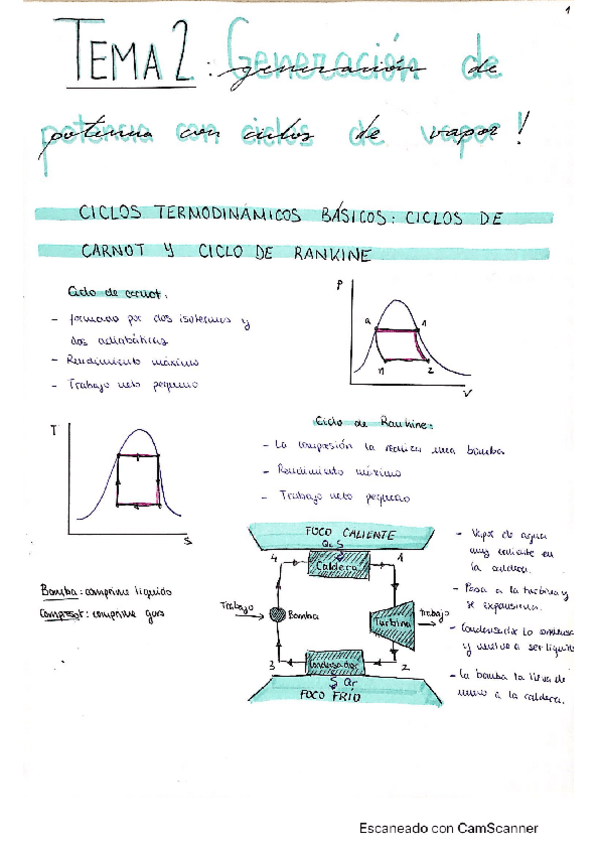 1
TEMA 2: Generación de
potencia con ciclos de vapor!
CICLOS TERMODINÁMICOS BÁSICOS: CICLOS DE
CARNOT Y CICLO DE RANKINE
Ciclo de carnot:
- formado por dos isotermos y
dos adiabáticas
- Rendimiento máximo
- Trabajo neto pequeño
P
a
1
n
2
V
T
S
Ciclo de Rankine:
- La compresión la realiza una bomba
- Rendimiento máximo
- Trabajo neto pequeño
Bomba: comprime líquido
Compresor: comprime gas
FOCO CALIENTE
Qc
4
Caldera
1
Trabajo
Bomba
Turbina
Trabajo
3
Condensador
2
Qf
FOCO FRÍO
- Vapor de agua
muy caliente en
la caldera.
- Pasa a la turbina y
se expansiona.
- Condensador lo condensa
y vuelve a ser líquido
- la bomba la lleva de
nuevo a la caldera.
Escaneado con CamScanner